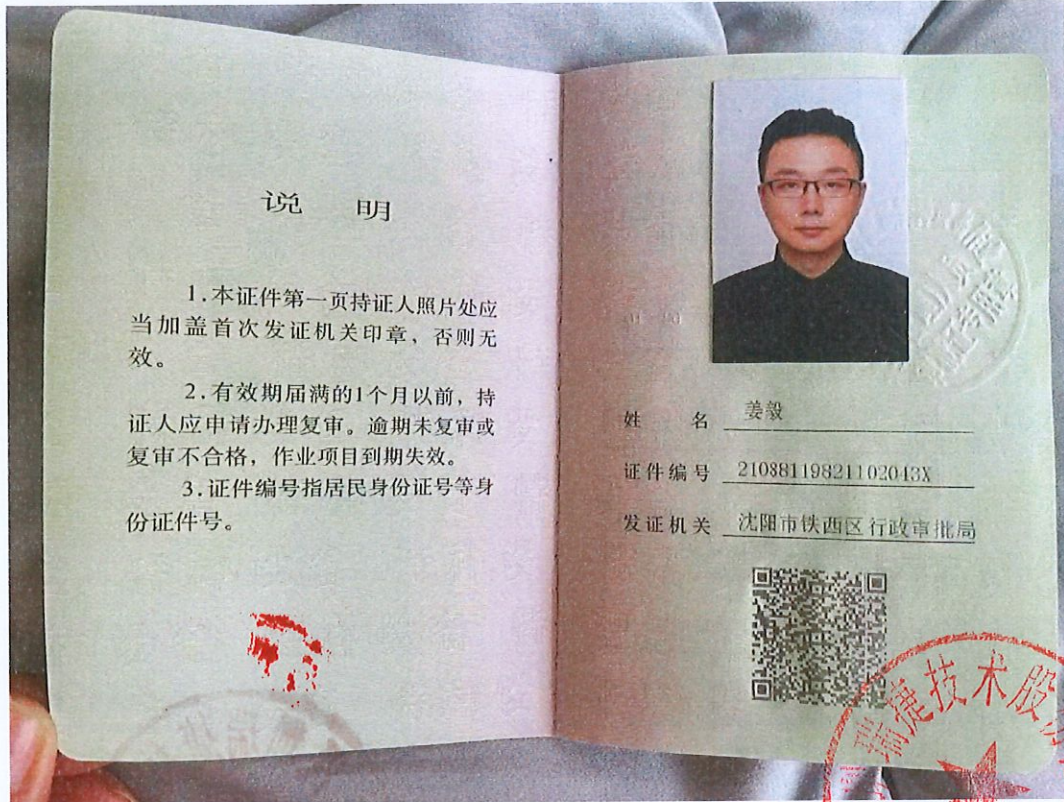 说 明
1.本证件第一页持证人照片处应
当加盖首次发证机关印章，否则无
效。
2.有效期届满的1个月以前，持
证人应申请办理复审。逾期未复审或
复审不合格，作业项目到期失效。
3.证件编号指居民身份证号等身
份证件号。
姓 名 姜毅
证件编号 21088119821102043X
发证机关 沈阳市铁西区行政审批局
瑞捷技术股份